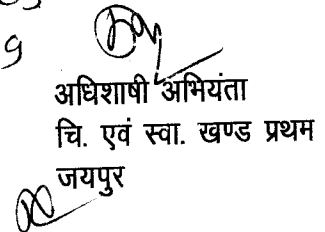 9
अधिशाषी अभियंता
चि. एवं स्वा. खण्ड प्रथम
जयपुर